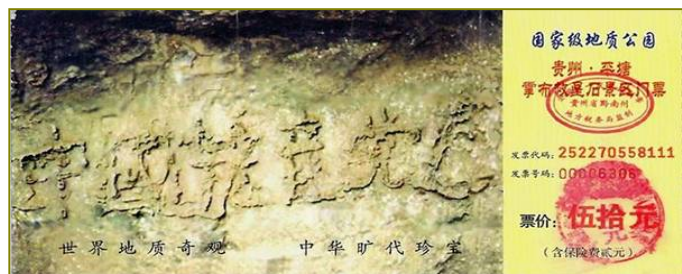 中國共産党亡
世界地质奇观 中华旷代珍宝
国家级地质公园
贵州·平塘
掌布救星石景区门票
贵州省黔南州
地方税务局监制
发票代码:252270558111
发票号码:
票价:伍拾元
(含保险费贰元)